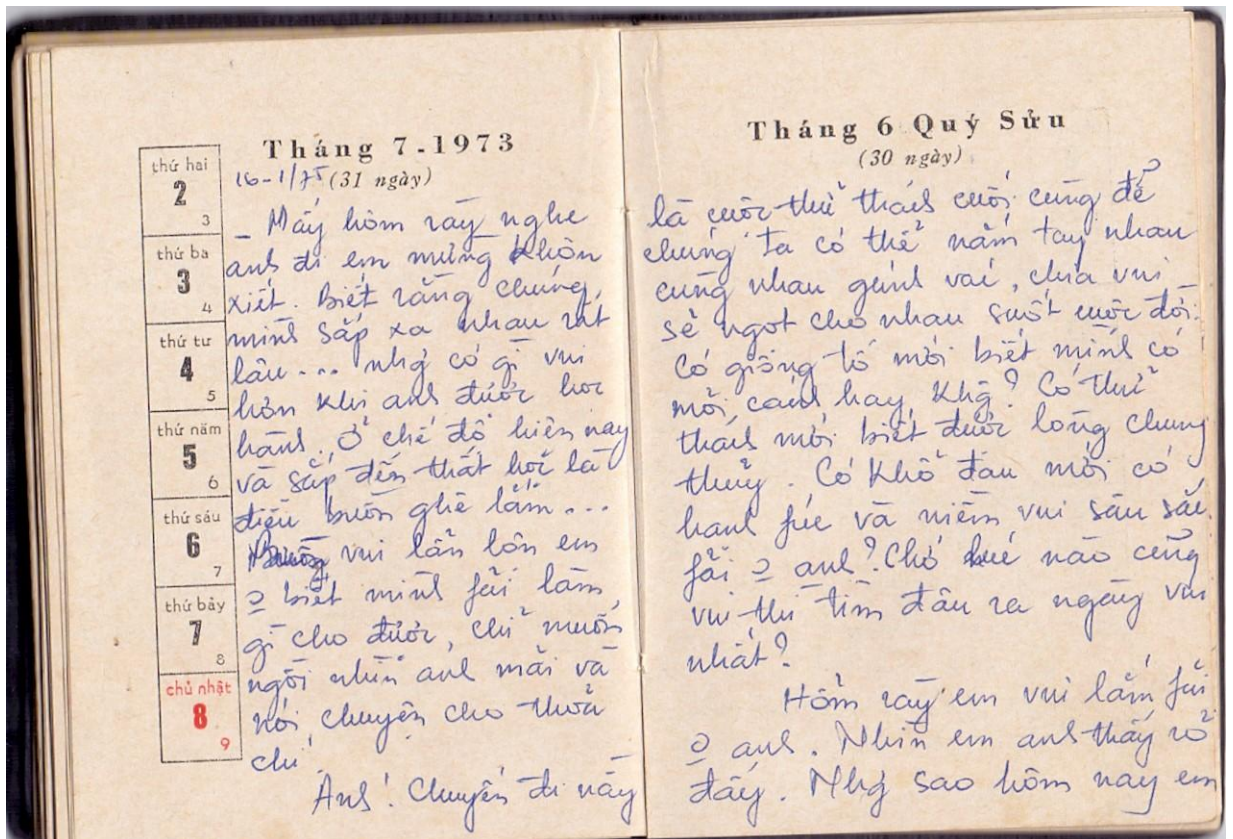 Tháng 7-1973
16-1/75 (31 ngày)
thứ hai
2
3
thứ ba
3
4
thứ tư
4
5
thứ năm
5
6
thứ sáu
6
7
thứ bảy
7
8
chủ nhật
8
9
_ Mấy hôm rày nghe
anh đi em mừng khôn
xiết. Biết rằng chúng
mình sắp xa nhau rất
lâu... nhg có gì vui
hơn khi anh được học
hành. Ở chế độ hiện nay
và sắp đến thất học là
điều buồn ghê lắm...
Buồn vui lẫn lộn em
ɔ biết mình fải làm
gì cho được, chỉ muốn
ngồi nhìn anh mãi và
nói chuyện cho thỏa
chí.
Anh! Chuyến đi này
Tháng 6 Quý Sửu
(30 ngày)
là cuộc thử thách cuối cùng để
chúng ta có thể nắm tay nhau
cùng nhau gánh vai, chia vui
sẻ ngọt cho nhau suốt cuộc đời.
Có giông tố mới biết mình có
mỏi cánh hay khg? Có thử
thách mới biết được lòng chung
thuỷ. Có khổ đau mới có
hanh fúc và niềm vui sâu sắc
fải ɔ anh? Chớ lúc nào cũng
vui thì tìm đâu ra ngày vui
nhất?
Hổm rày em vui lắm fải
ɔ anh. Nhìn em anh thấy rõ
đấy. Nhg sao hôm nay em